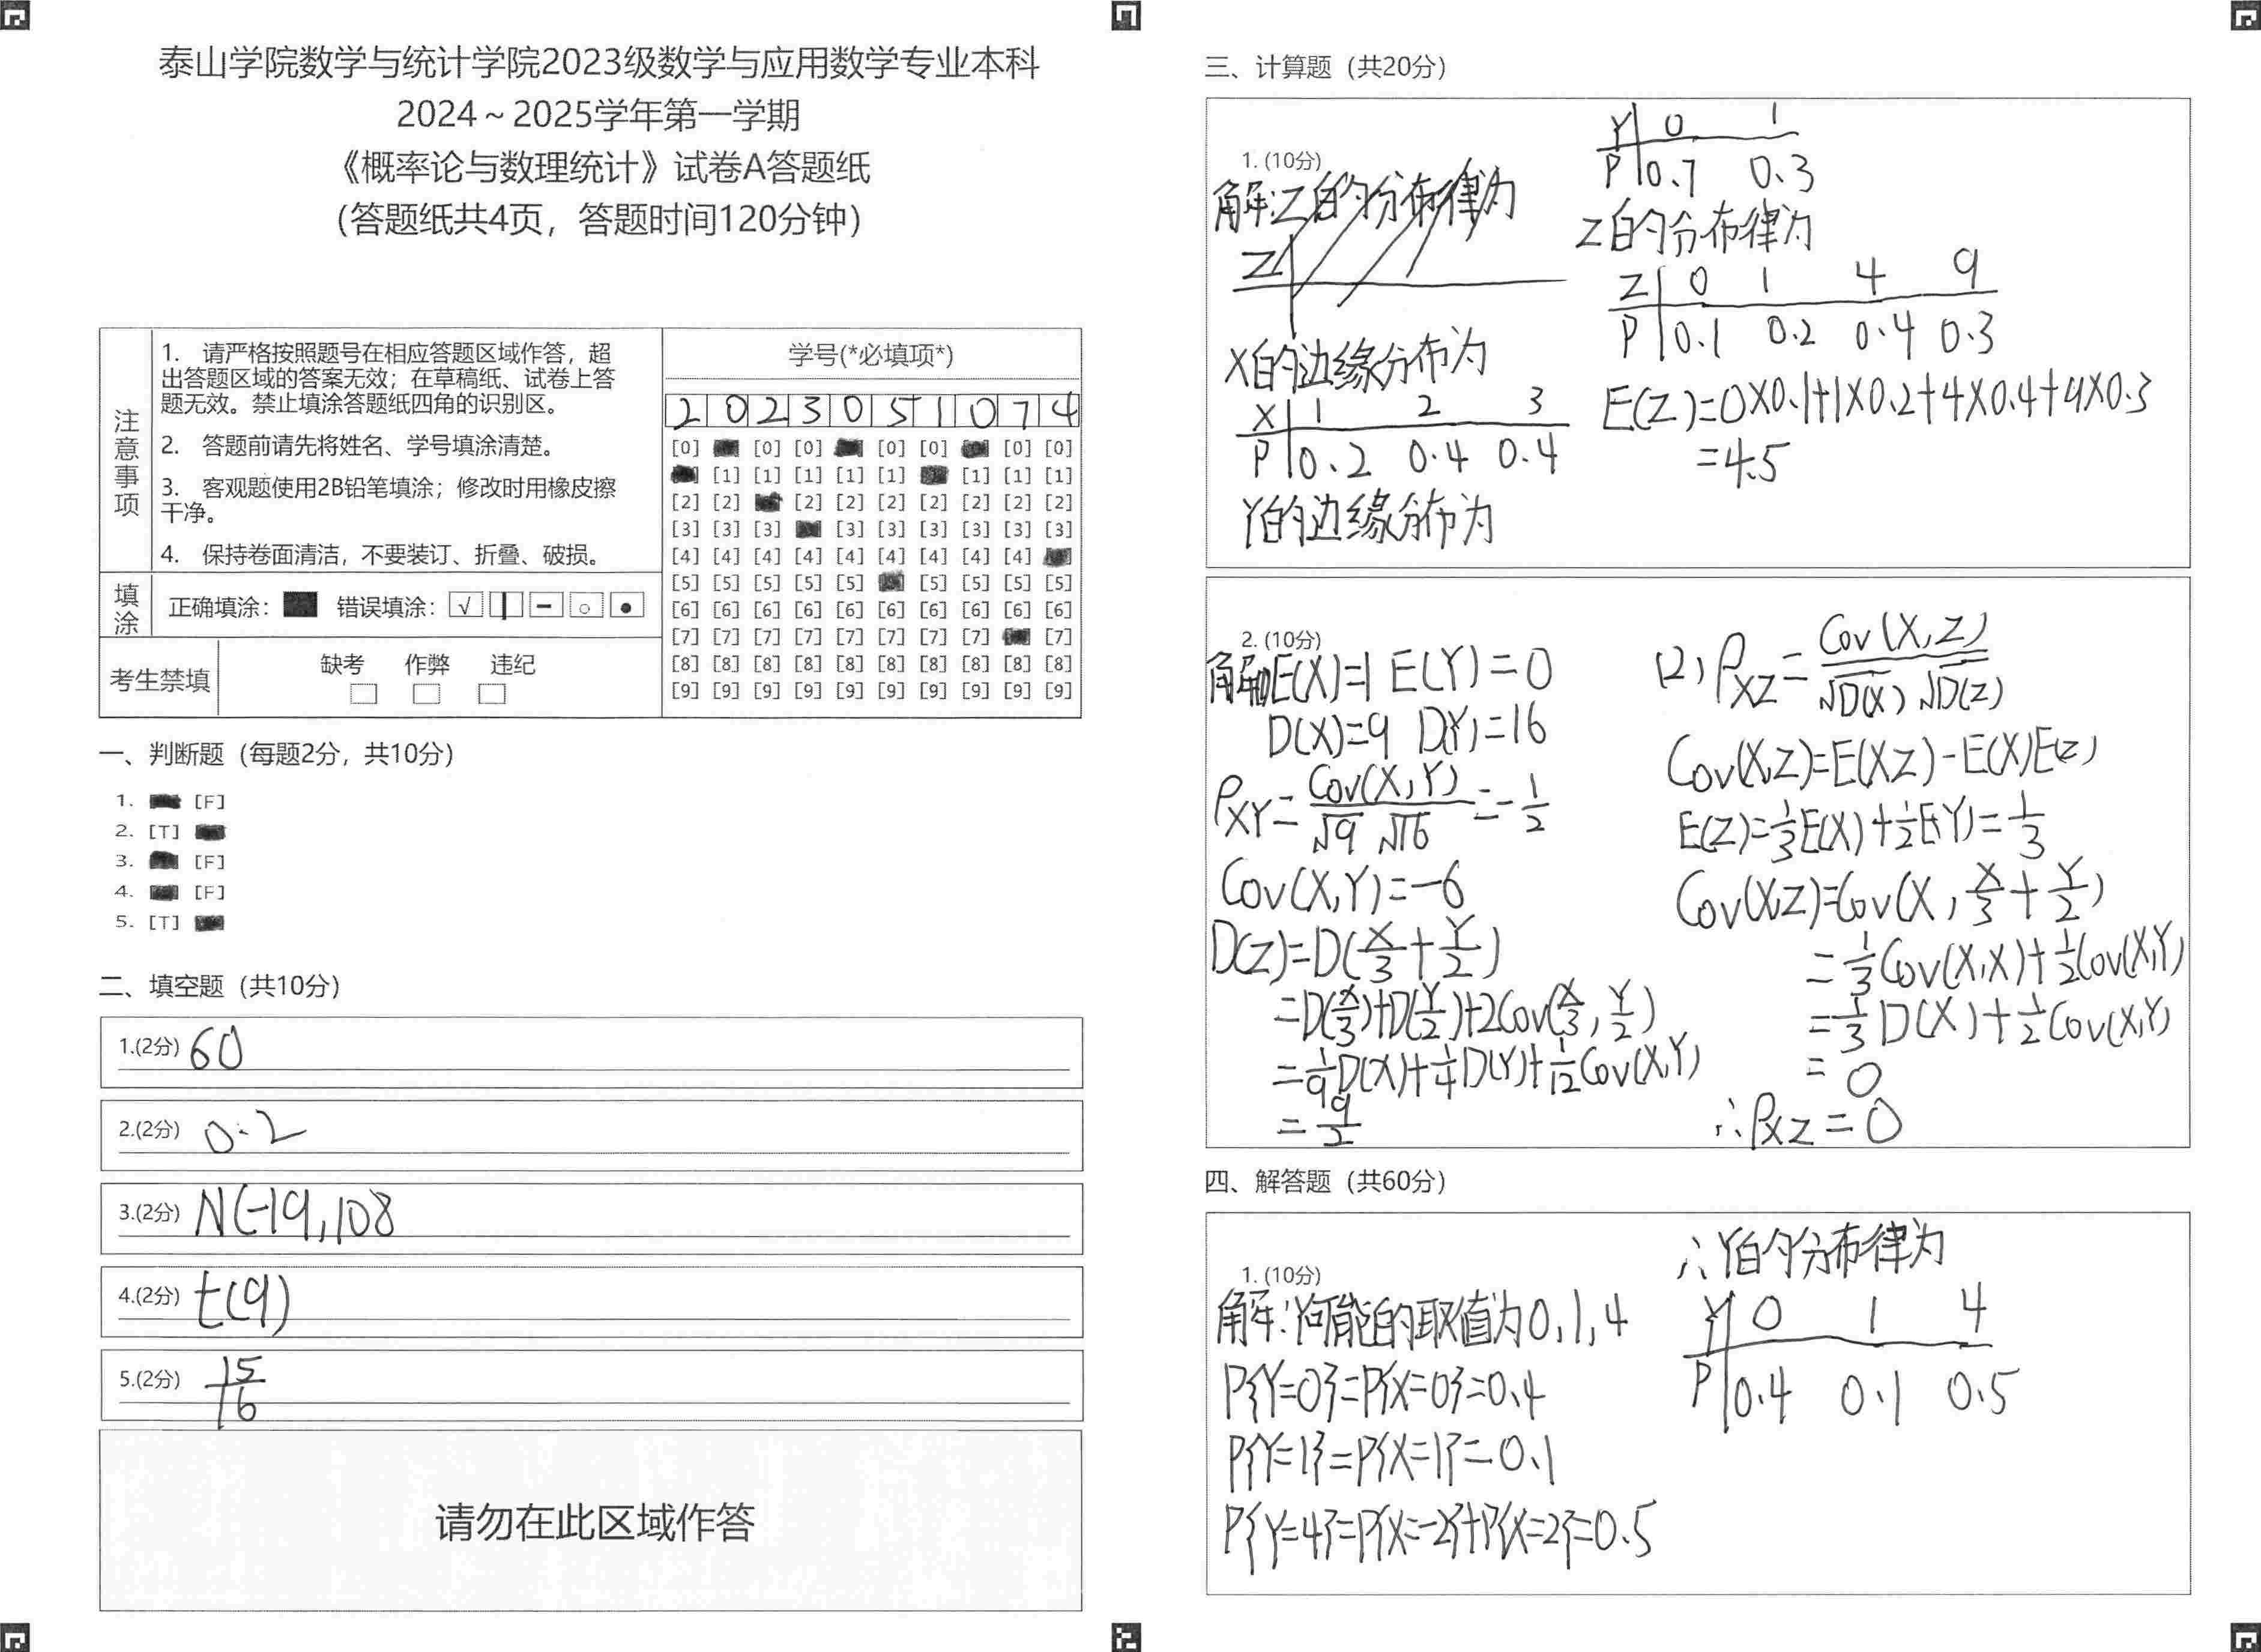 泰山学院数学与统计学院2023级数学与应用数学专业本科
2024~2025学年第一学期
《概率论与数理统计》试卷A答题纸
(答题纸共4页，答题时间120分钟)
注意事项
1. 请严格按照题号在相应答题区域作答，超
出答题区域的答案无效；在草稿纸、试卷上答
题无效。禁止填涂答题纸四角的识别区。
2. 答题前请先将姓名、学号填涂清楚。
3. 客观题使用2B铅笔填涂；修改时用橡皮擦
干净。
4. 保持卷面清洁，不要装订、折叠、破损。
填涂
正确填涂： 错误填涂： √
考生禁填
缺考 作弊 违纪
学号(*必填项*)
2 0 2 3 0 5 1 0 7 4
[0] [0] [0] [0] [0] [0] [0]
[1] [1] [1] [1] [1] [1] [1] [1]
[2] [2] [2] [2] [2] [2] [2] [2] [2]
[3] [3] [3] [3] [3] [3] [3] [3] [3]
[4] [4] [4] [4] [4] [4] [4] [4] [4]
[5] [5] [5] [5] [5] [5] [5] [5] [5]
[6] [6] [6] [6] [6] [6] [6] [6] [6] [6]
[7] [7] [7] [7] [7] [7] [7] [7] [7]
[8] [8] [8] [8] [8] [8] [8] [8] [8] [8]
[9] [9] [9] [9] [9] [9] [9] [9] [9] [9]
一、判断题（每题2分，共10分）
1. [F]
2. [T]
3. [F]
4. [F]
5. [T]
二、填空题（共10分）
1.(2分) 60
2.(2分) 0.2
3.(2分) N(-19,108
4.(2分) t(9)
5.(2分) 15/6
请勿在此区域作答
三、计算题（共20分）
1. (10分)
解:Z的分布律为
Z
X的边缘分布为
X 1 2 3
P 0.2 0.4 0.4
Y的边缘分布为
Y 0 1
P 0.7 0.3
Z的分布律为
Z 0 1 4 9
P 0.1 0.2 0.4 0.3
E(Z)=0×0.1+1×0.2+4×0.4+9×0.3
=4.5
2. (10分)
解:(1)E(X)=1 E(Y)=0
D(X)=9 D(Y)=16
ρXY=Cov(X,Y)/√9 √16=-1/2
Cov(X,Y)=-6
D(Z)=D(X/3+Y/2)
=D(X/3)+D(Y/2)+2Cov(X/3,Y/2)
=1/9D(X)+1/4D(Y)+1/12Cov(X,Y)
=9/2
(2) ρXZ=Cov(X,Z)/√D(X) √D(Z)
Cov(X,Z)=E(XZ)-E(X)E(Z)
E(Z)=1/3E(X)+1/2E(Y)=1/3
Cov(X,Z)=Cov(X,X/3+Y/2)
=1/3Cov(X,X)+1/2Cov(X,Y)
=1/3D(X)+1/2Cov(X,Y)
=0
∴ρXZ=0
四、解答题（共60分）
1. (10分)
解:Y可能的取值为0,1,4
P{Y=0}=P{X=0}=0.4
P{Y=1}=P{X=1}=0.1
P{Y=4}=P{X=-2}+P{X=2}=0.5
∴Y的分布律为
Y 0 1 4
P 0.4 0.1 0.5